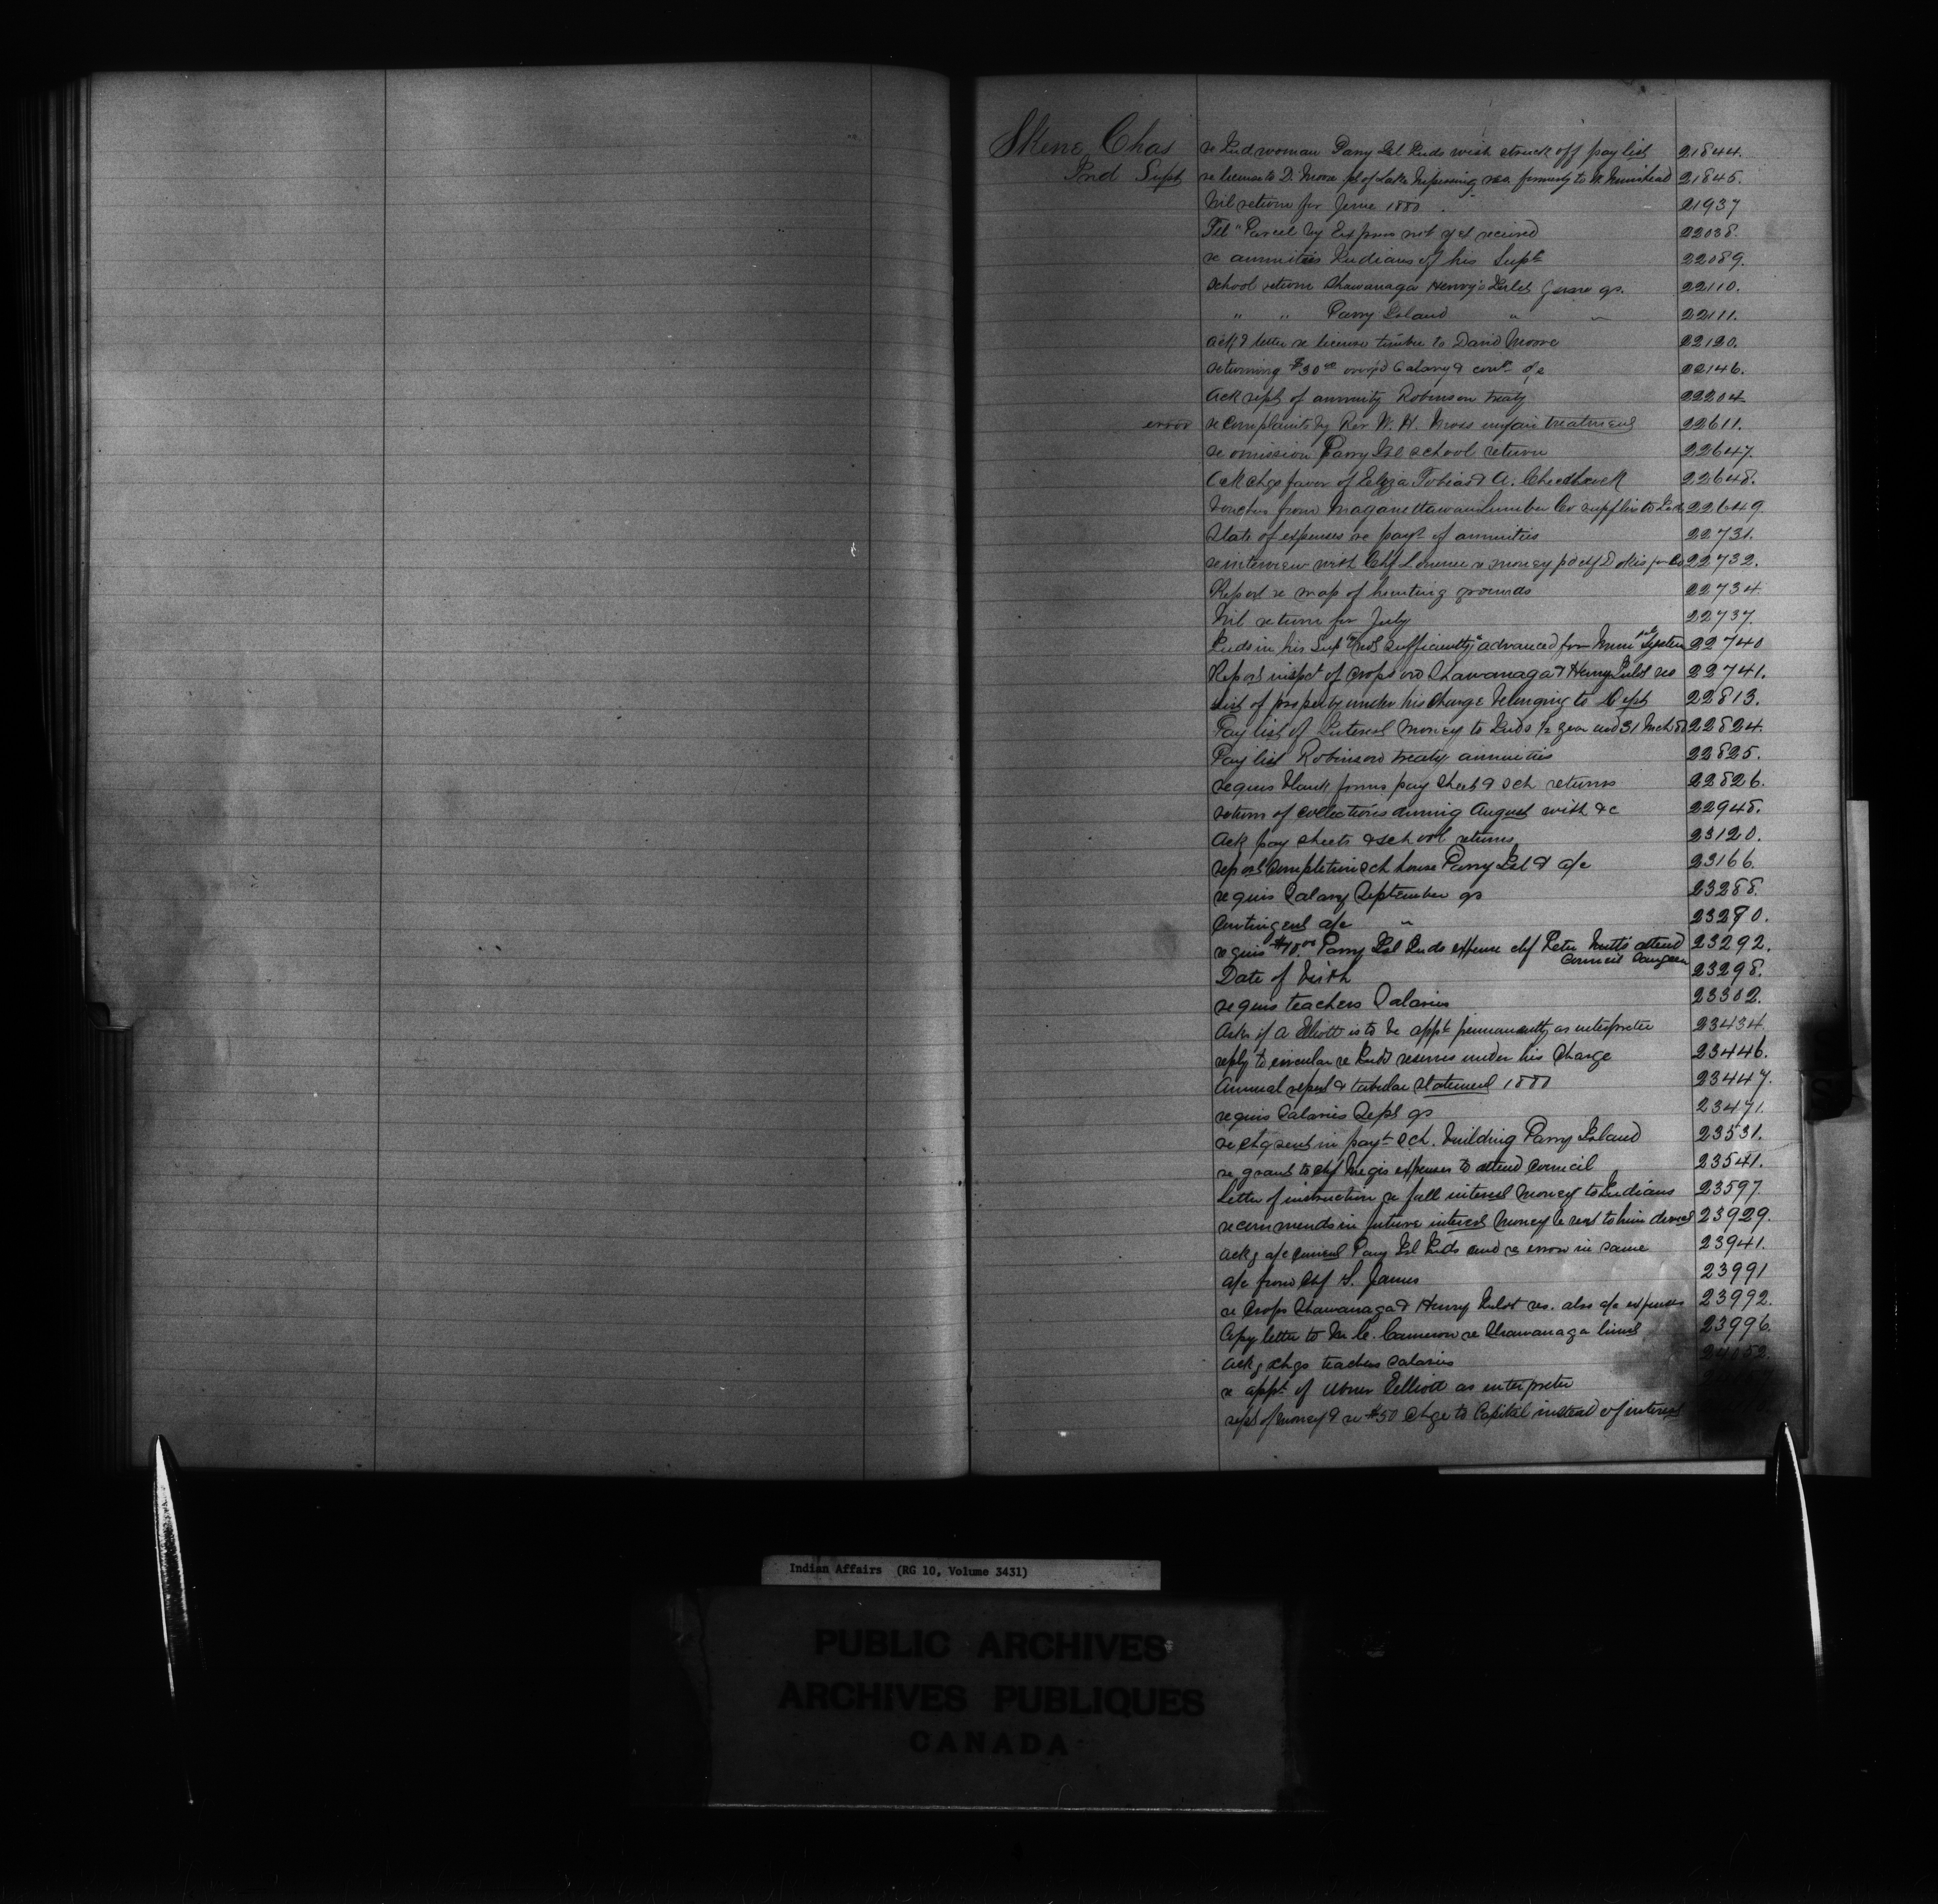 Skene, Chas
Ind Supt
re Ind woman Parry Isl Inds wish struck off pay list 21844.
re license to D. Moore pt of Lake Nipissing res. formerly to 21845.
Nil return for June 1880. 21937
Tel "Parcel by Express not yet received 22038.
re annuities Indians of his Supt 22089.
School return Shawanaga Henvey's Inlet June qr. 22110.
" " Parry Island " " 22111.
Ack letter re license timber to David Moore 22120.
returning $30 00 Salary & a/c 22146.
Ack rept of annuity Robinson treaty 22204
error re complaints by Rev W. H. unfair treatment 22611.
re omission Parry Isl school return 22647.
Ack chqs favor of Eliza Tobias & A. 22648.
Voucher from Maganettawan Lumber Co supplies to Inds 22649.
State of expenses re payt of annuities 22731.
re interview with Chf re money pd chf Dokis 22732.
Report re map of hunting grounds 22734.
Nil return for July 22737.
Inds in his Supt "not sufficiently" advanced for Muni System 22740
Report inspct of crops on Shawanaga & Henvey Inlet res 22741.
List of property under his charge belonging to Dept 22813.
Pay list of Interest Money to Inds 1/2 year end 31 Mch 80 22824.
Pay list Robinson treaty annuities 22825.
requis blank forms pay sheet & sch returns 22826.
return of collections during August with &c 22948.
Ack pay sheets & school returns 23120.
report completion sch house Parry Isl & a/c 23166.
requis Salary September qr 23288.
Contingent a/c " 23290.
requis Parry Isl Inds expense chf Peter attend 23292.
Council Saugeen
Date of birth 23298.
requis teachers Salaries 23302.
Asks if A Elliott is to be appt permanently as interpreter 23434.
reply to circular re Ind reserves under his charge 23446.
Annual report & tabular statement 1880 23447.
requis Salaries Sept qr 23471.
re chq sent in payt sch. building Parry Island 23531.
re grant to chf Megis expenses to attend Council 23541.
Letter of instruction re fall interest money to Indians 23597.
recommends in future interest money be sent to him direct 23929.
Ackg a/c Parry Isl Inds and re error in same 23941.
a/c from Chf S. James 23991
re Crops Shawanaga & Henvey Inlet res. also a/c expenses 23992.
Copy letter to M. C. Cameron re Shawanaga 23996.
Ackg chqs teachers salaries
re appt of Abner Elliott as interpreter
rept of money & re $50 chge to Capital instead of interest
Indian Affairs (RG 10, Volume 3431)
PUBLIC ARCHIVES
ARCHIVES PUBLIQUES
CANADA